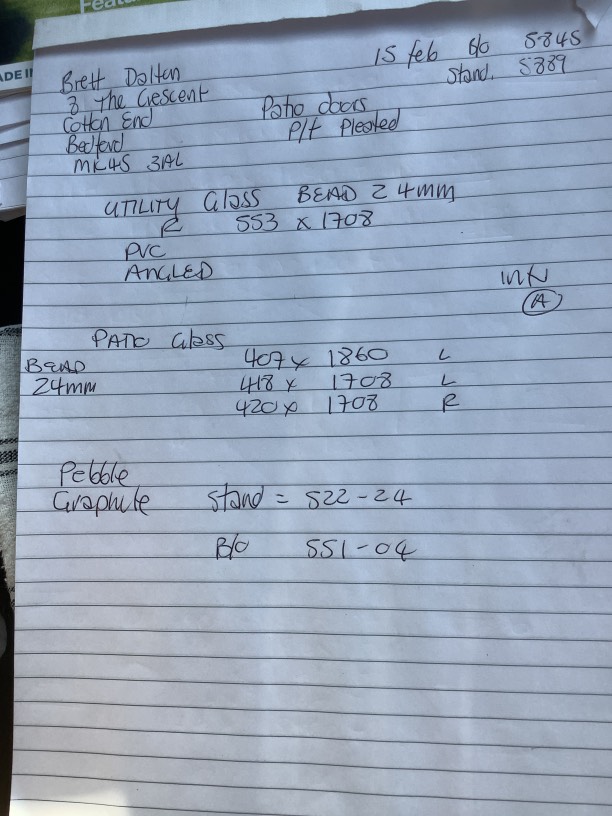 Featu
ADE II
15 feb B/O 5845
Stand. 5889
Brett Dalton
3 The Crescent
Cotton End
Bedford
MK45 3AL
Patio doors
P/t Pleated
UTILITY Glass BEAD 24mm
R 553 x 1708
PVC
ANGLED
A
PATIO Glass
BEAD
24mm
407 x 1860 L
418 x 1708 L
420 x 1708 R
Pebble
Graphite Stand = 522-24
B/O 551-04